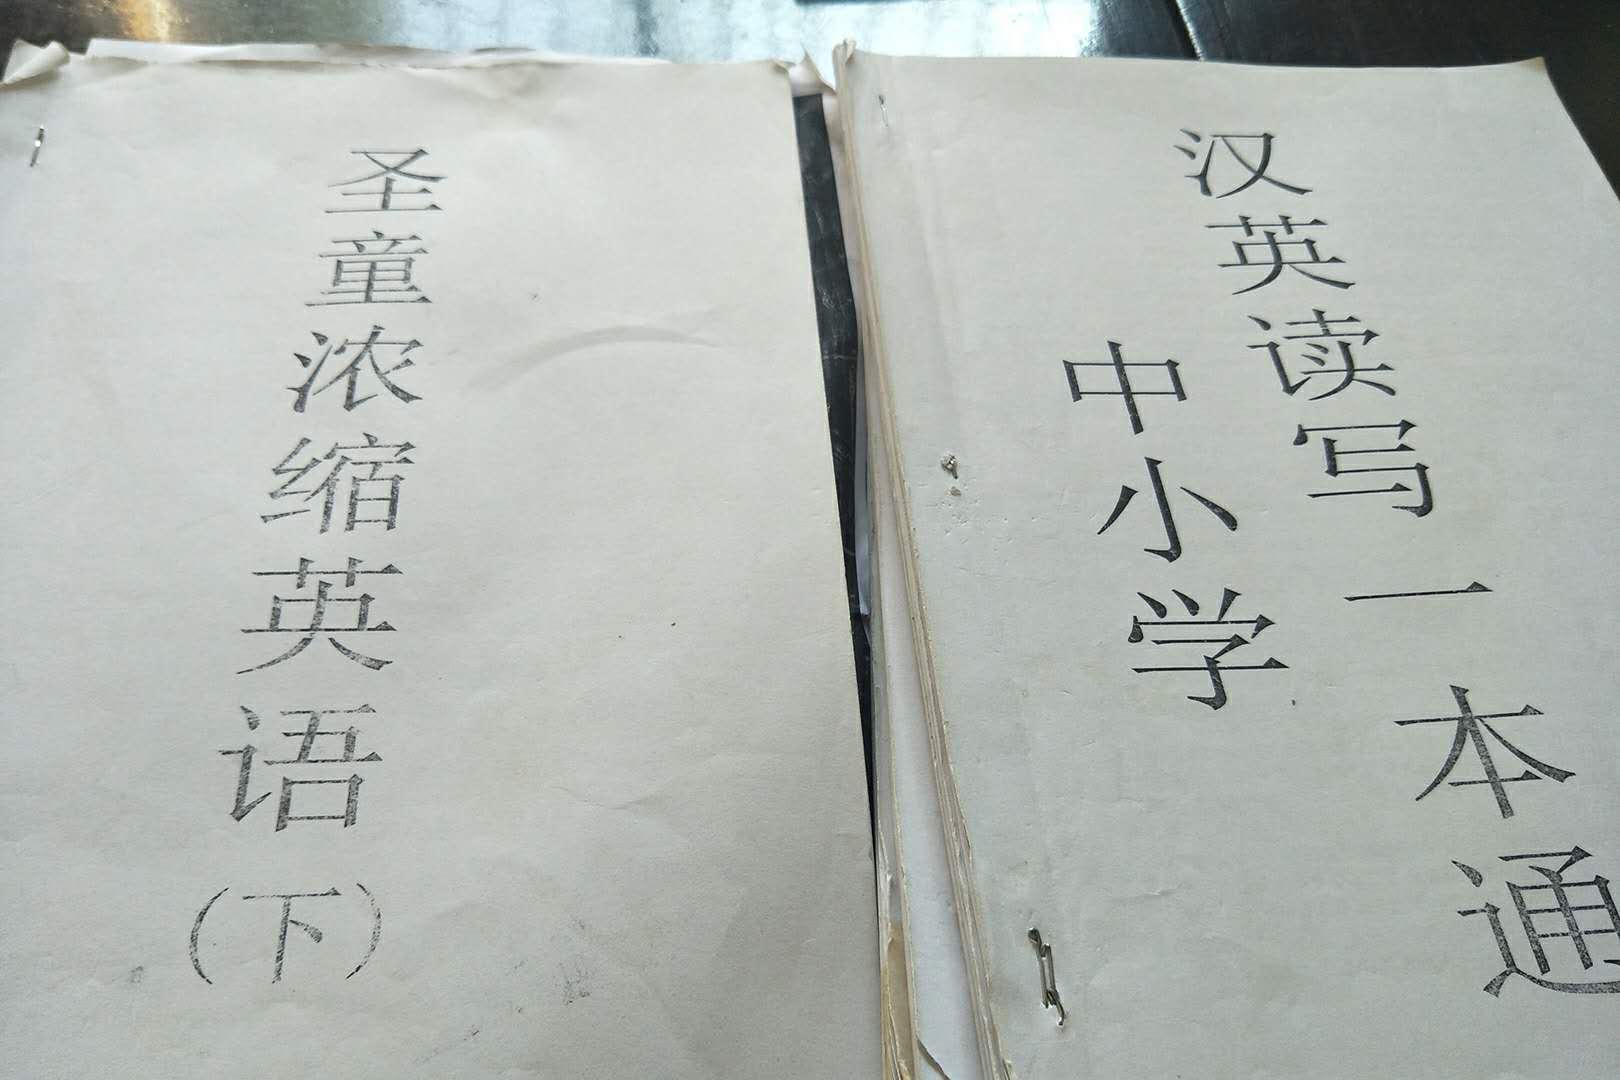 圣童浓缩英语（下）
汉英读写一本通
中小学